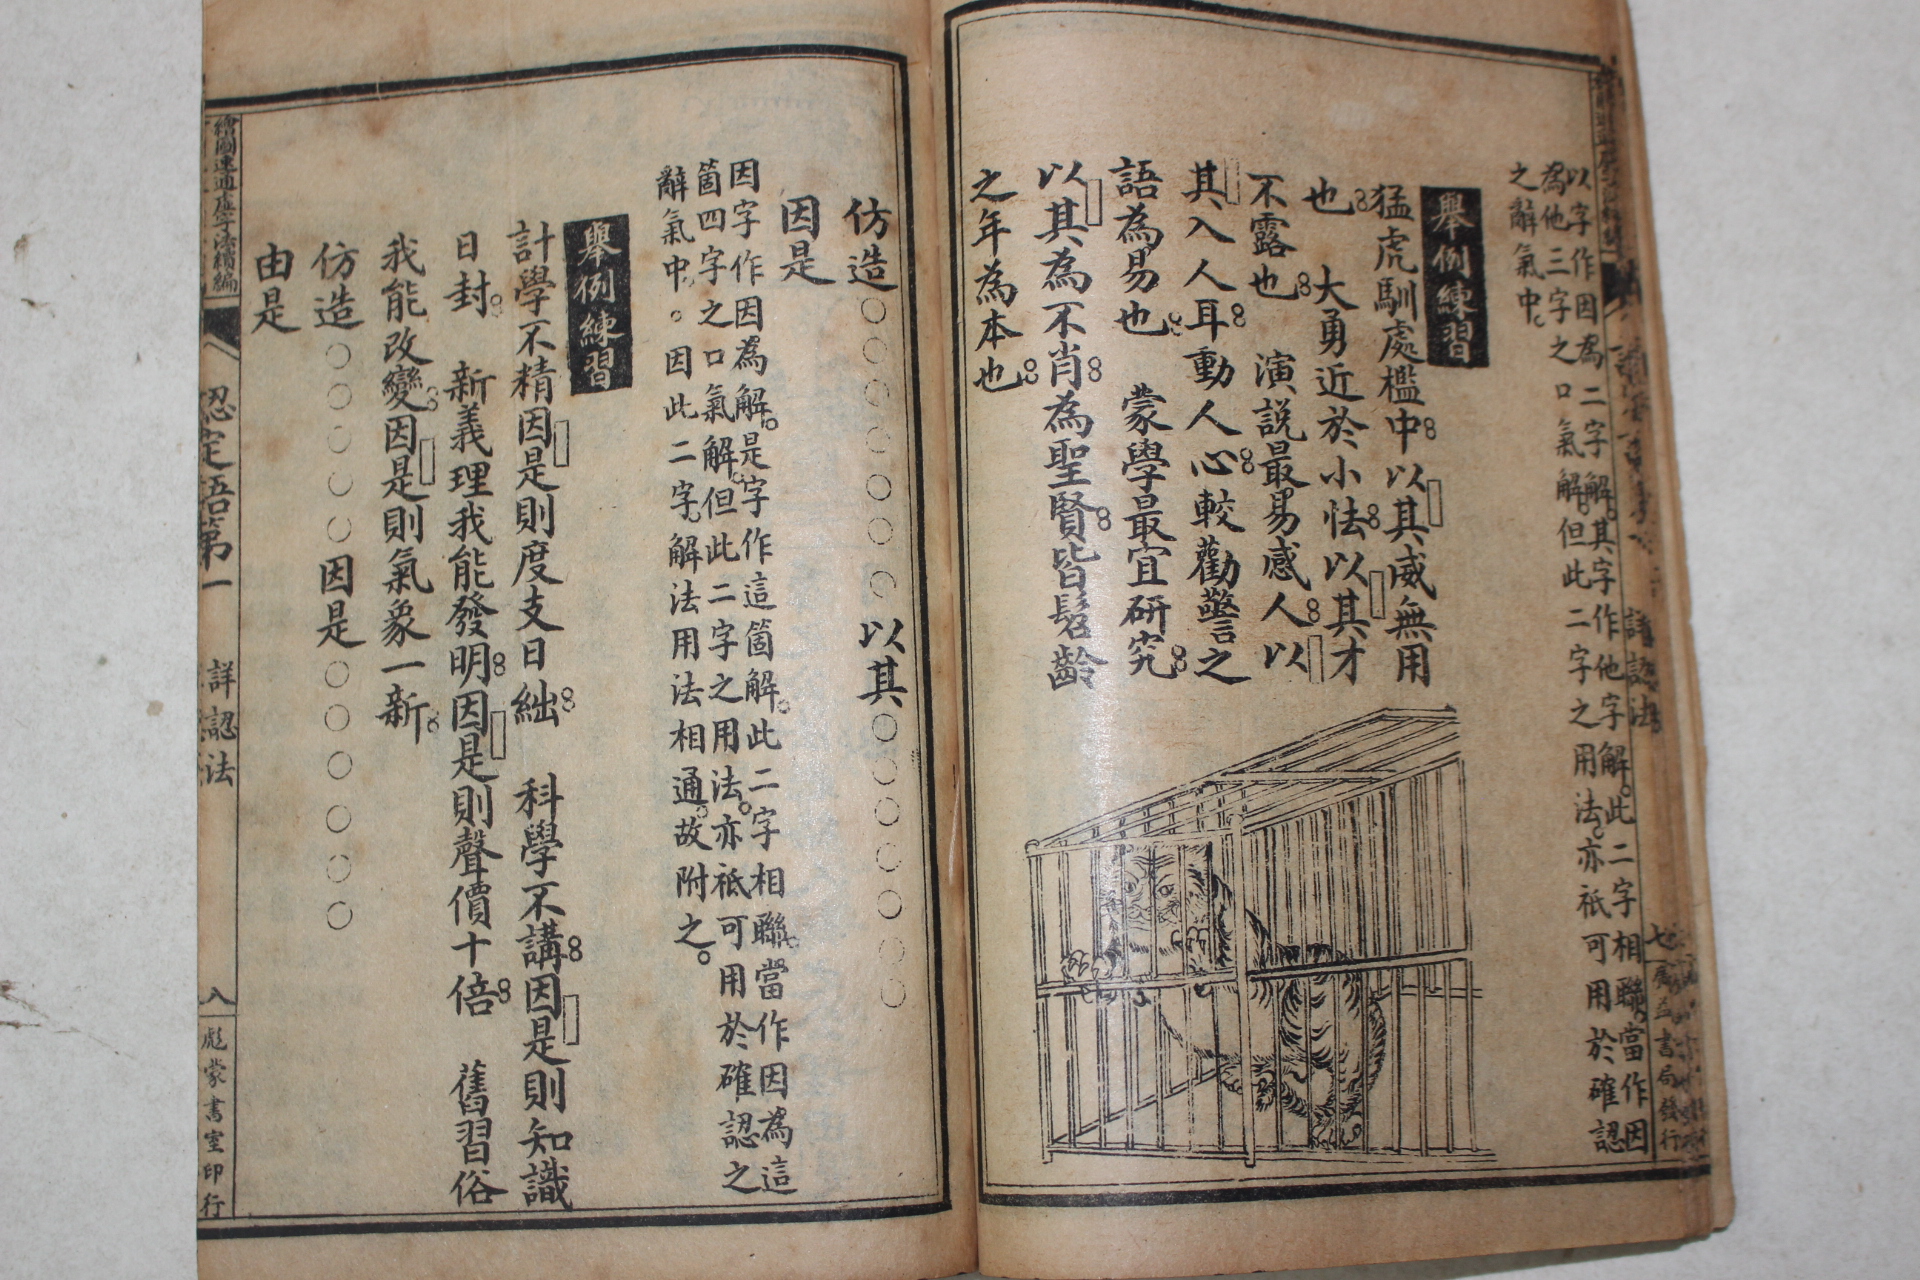 以字作因為二字解。其字作他字解。此二字相聯。當作因
為他三字之口氣解。但此二字之用法。亦祗可用於確認
之辭氣中。
舉例練習
猛虎馴處檻中。以其威無用
也。　大勇近於小怯。以其才
不露也。　演説最易感人。以
其入人耳動人心。較勸警之
語為易也。　蒙學最宜研究。
以其為不肖為聖賢。皆髫齡
之年為本也。
仿造○○○○○○○以其○○○○○○○
因是
因字作因為解。是字作這箇解。此二字相聯。當作因為這
箇四字之口氣解。但此二字之用法。亦祗可用於確認之
辭氣中。。因此二字。解法用法相通。故附之。
舉例練習
計學不精因是則度支日絀。　科學不講。因是則知識
日封。　新義理我能發明。因是則聲價十倍。　舊習俗
我能改變。因是則氣象一新。
仿造○○○○○因是○○○○○○
由是
繪圖速通虛字法續編
認定語第一　詳認法
八　彪蒙書室印行
詳認法
七　廣益書局發行